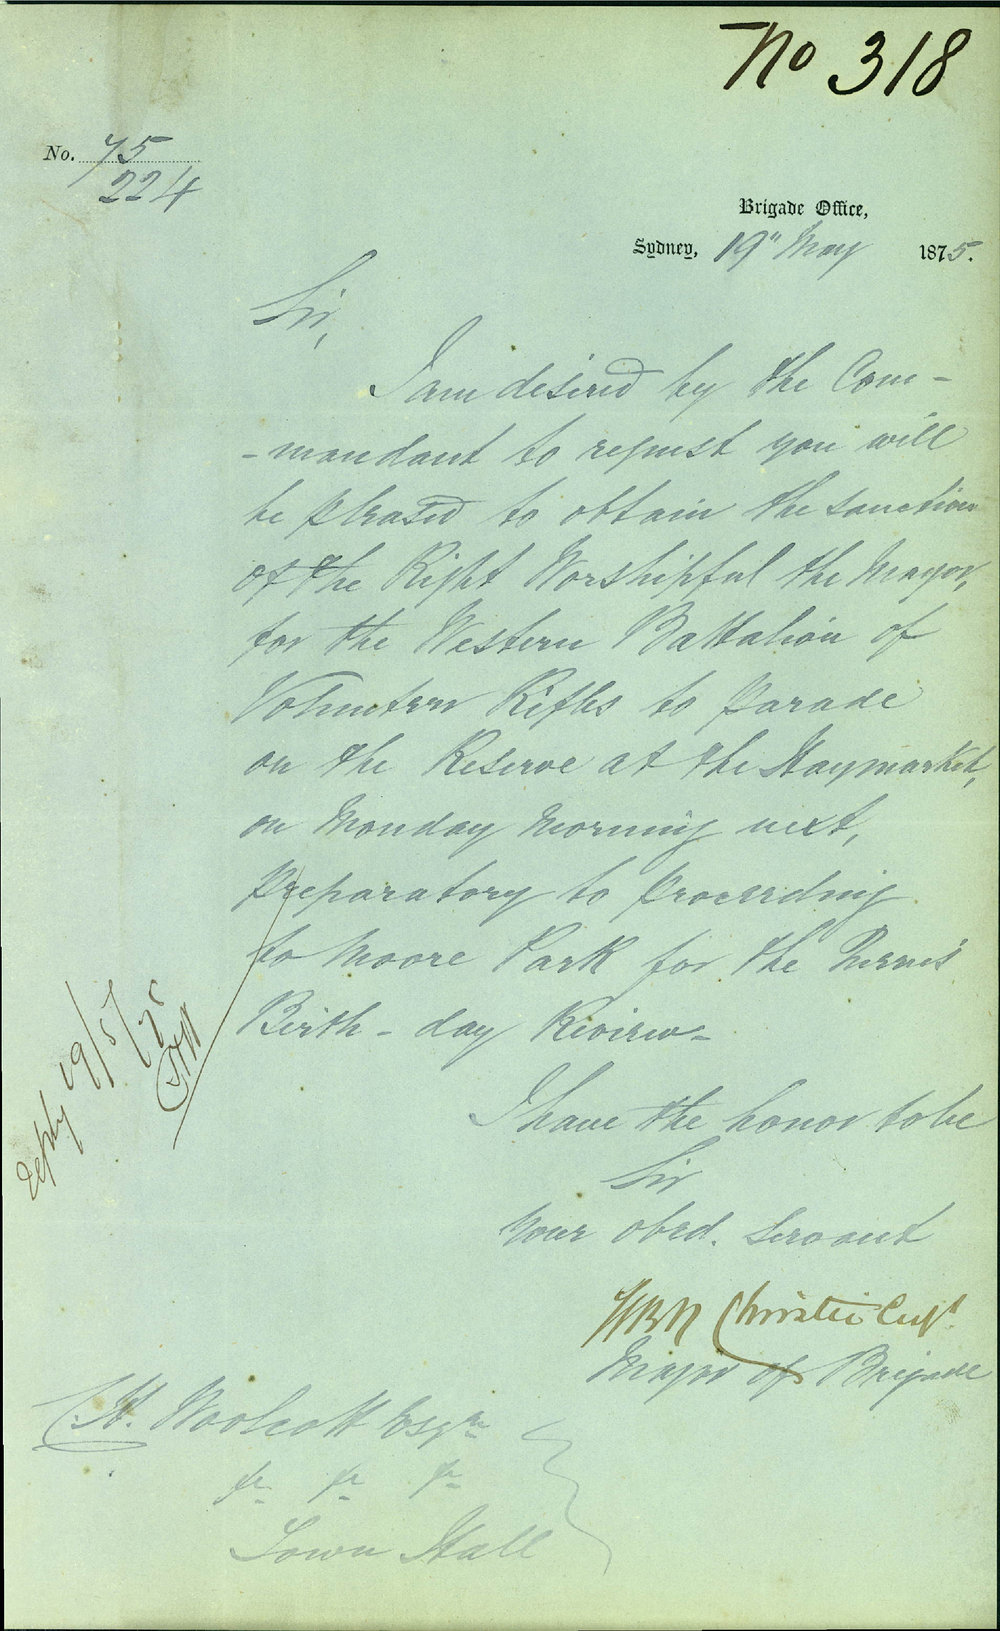 No 318
No. 75
224
Brigade Office,
Sydney, 19" May 1875.
Sir,
I am desired by the Com-
-mandant to request you will
be pleased to obtain the sanction
of the Right Worshipful the Mayor,
for the Western Battalion of
Volunteer Rifles to parade
on the Reserve at the Haymarket,
on Monday Morning next,
preparatory to proceeding
to Moore Park for the Queen's
Birth-day Review-
I have the honor to be
Sir
Your obed. Servant
Christie Capt.
Major of Brigade
reply 19/5/75
C.H. Woolcott Esqre
&c &c &c
Town Hall